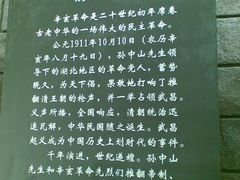 辛亥革命是二十世纪初年席卷
古老中华的一场伟大的民主革命。
公元1911年10月10日（农历辛
亥年八月十九日），孙中山先生领
导下的湖北地区的革命党人，蓄势
既久，为天下倡，果敢地打响了推
翻清王朝的枪声，并一举占领武昌。
义声所播，全国响应，清朝统治迅
速瓦解，中华民国随之诞生。武昌
起义成为中国历史上划时代的事件。
千年演进，世纪遥煌。孙中山
先生和辛亥革命先烈们推翻帝制、